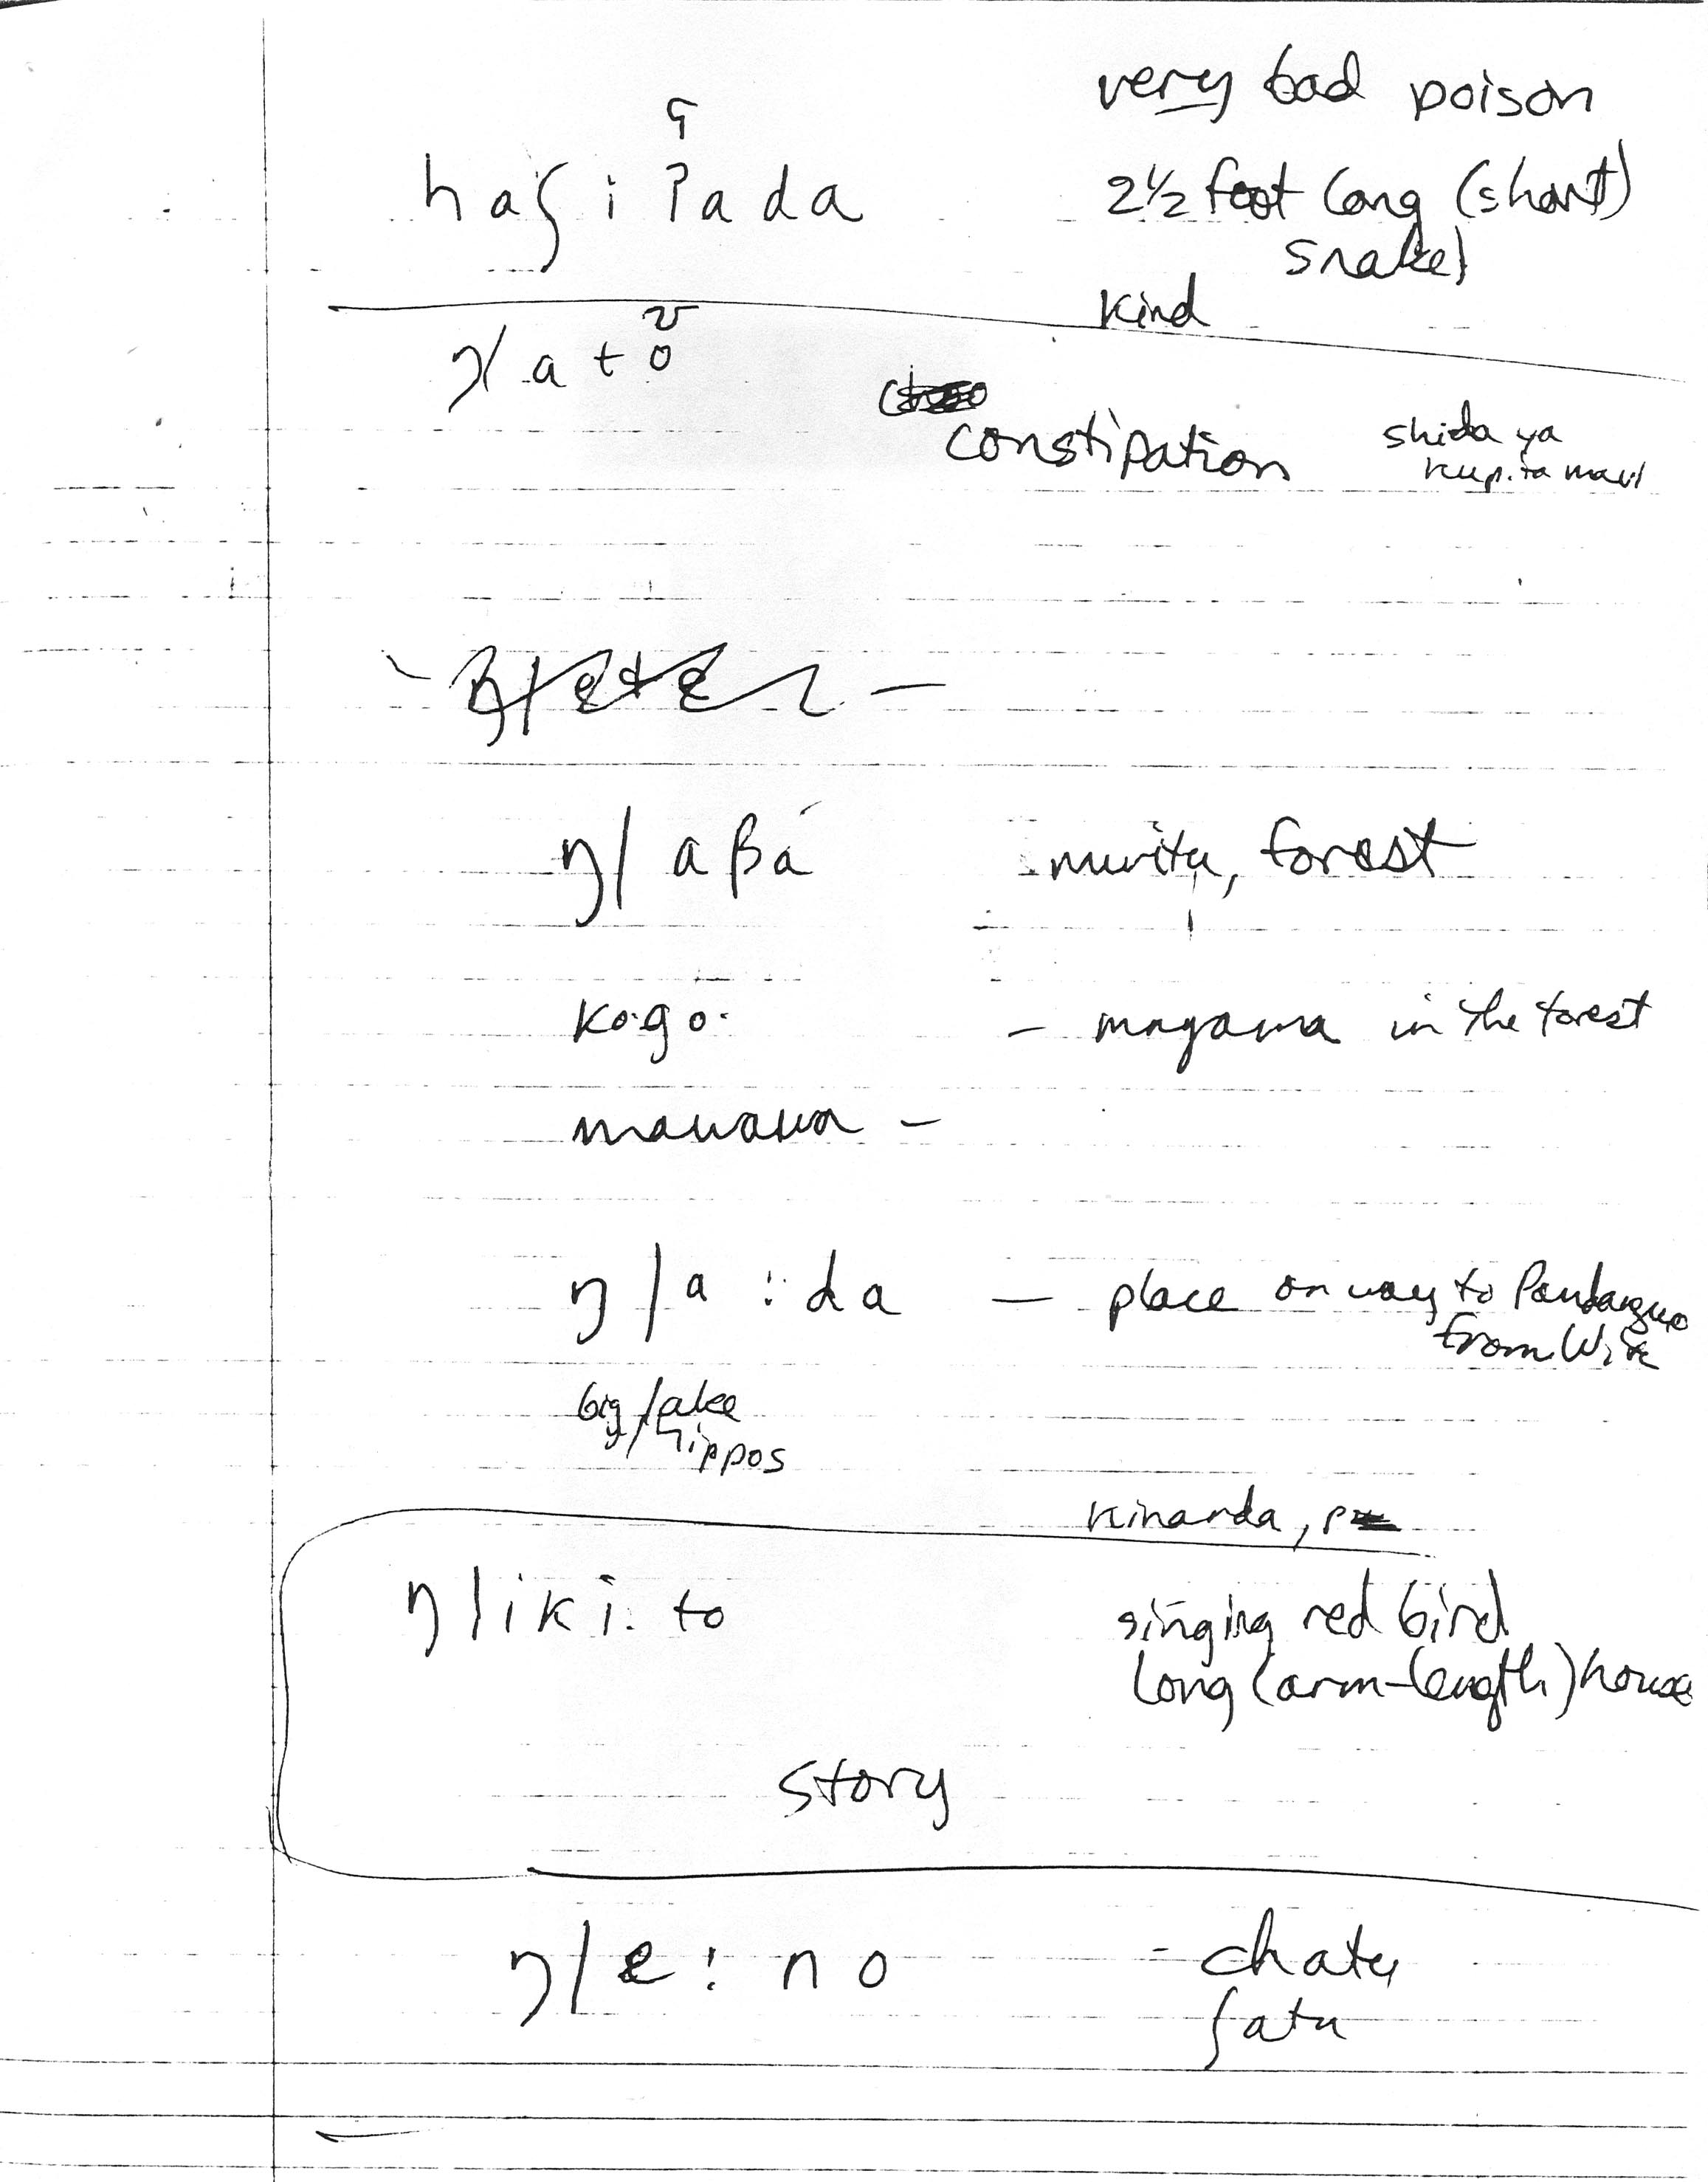 very bad poison
ʕ
haʕiʔada 2½ foot long (short)
snake)
kind
ŋ|atʊ
o
constipation shida ya
kupita mavi
ŋ|aβá mwitu, forest
ko·go· - mnyama in the forest
mawawa -
ŋ|a:da — place on way to Pandanguo
from Witu
big lake
hippos
kinanda,
ŋ|iki·to singing red bird
long (arm-length) house
story
ŋ|e:no - chatu
ʃatu